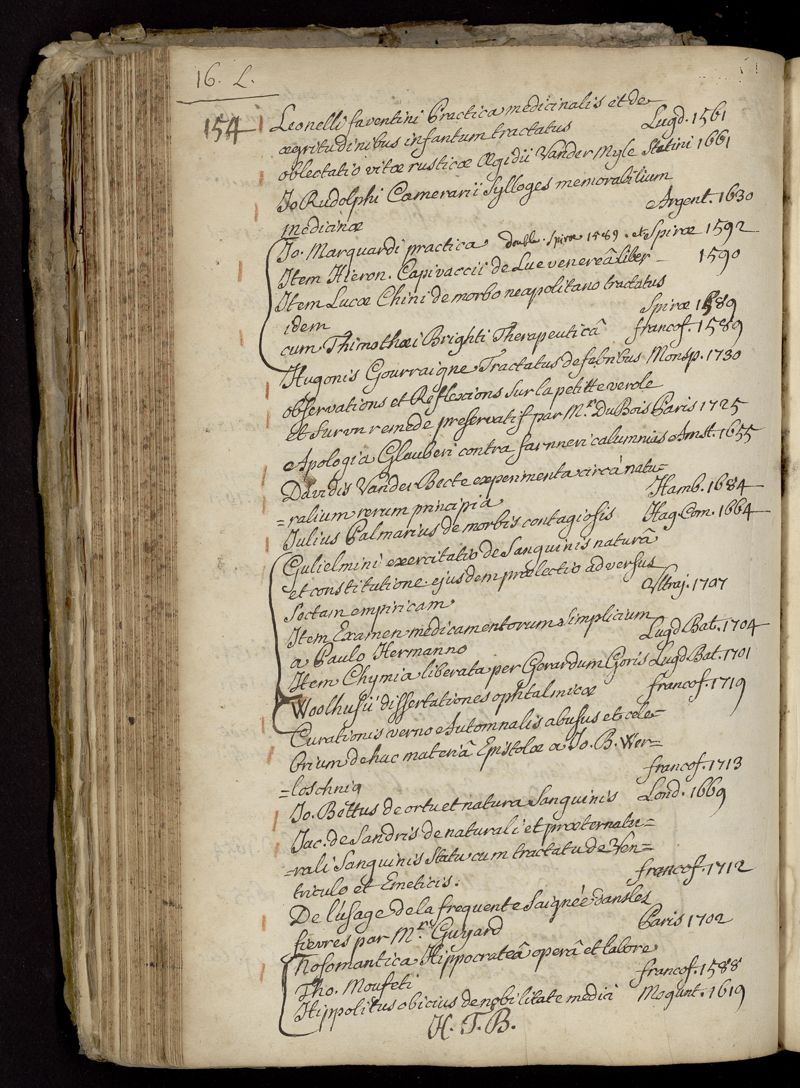 16. L.
154
Leonelli faventini Practica medicinalis et de
ægritudinibus infantum tractatus Lugd. 1561
oblectatio vitæ rusticæ Ægidii Vander Myle Stetini 1661
Jo Rudolphi Camerarii Sylloges memorabilium
medicinæ Argent. 1630
Jo. Marquardi practica double. Spiræ 1589. et Spiræ 1592
Item Hieron. Capivaccii de Lue venereâ liber 1590
Item Lucæ Chini de morbo neapolitano tractatus
idem Spiræ 1589
cum Thimothæi Brighti Therapeuticâ francof. 1589
Hugonis Gourraigne Tractatus de febribus Monsp. 1730
observations et Reflexions sur la petitte verole
et sur vn remede preservatif par Mr. Du Bois Paris 1725
Apologia Glauberi contra farnneri calumnias Amst. 1655
Davidis Vander Becte experimenta circà natu=
=ralium rerum principia Hamb. 1684
Julius Palmarius de morbis contagiosis Hag. Com. 1664
Gulielmini exercitatio de Sanguinis naturâ
et constitutione. ejusdem prælectio adversus
sectam empiricam Vltraj. 1707
Item Examen medicamentorum simplicium
a Paulo Hermanno Lugd Bat. 1704
Item Chymia liberata per Gerardum Goris Lugd. Bat. 1701
Woolhusii dissertationes ophtalmicæ francof. 1719
Curationis verno Automnalis abusus et cele=
brium de hac materiâ Epistolæ a Jo. B. Wer=
=loschnig francof. 1713
Jo. Bettus de ortu et natura Sanguinis Lond. 1669
Jac. de Sandris de naturali et præternatu=
=rali Sanguinis statu cum tractatu de Ven=
triculo et Emeticis. francof. 1712
De l'usage de la frequente Saignée dans les
fievres par Mr. Guyard Paris 1702
Nosomantica Hippocrateâ operâ et labore
Tho. Moufeti francof. 1588
Hippolitus obicius de nobilitate medici Mogunt. 1619
H. T. B.